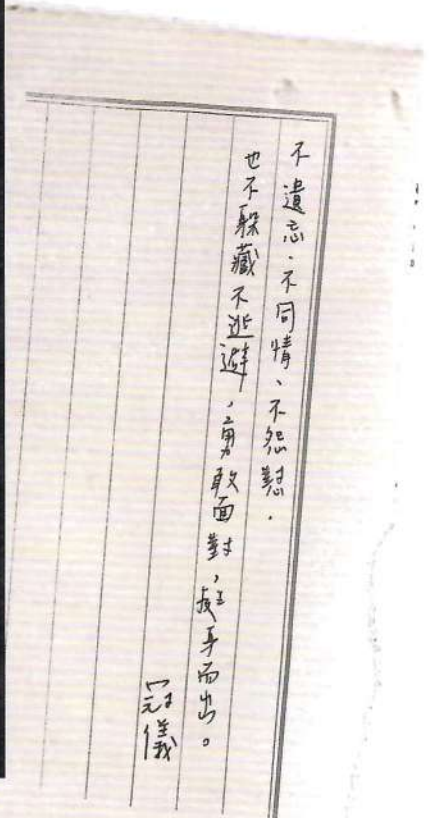 不遺忘、不同情、不怨懟,
也不躲藏不逃避,勇敢面對,挺身而出。
冠儀